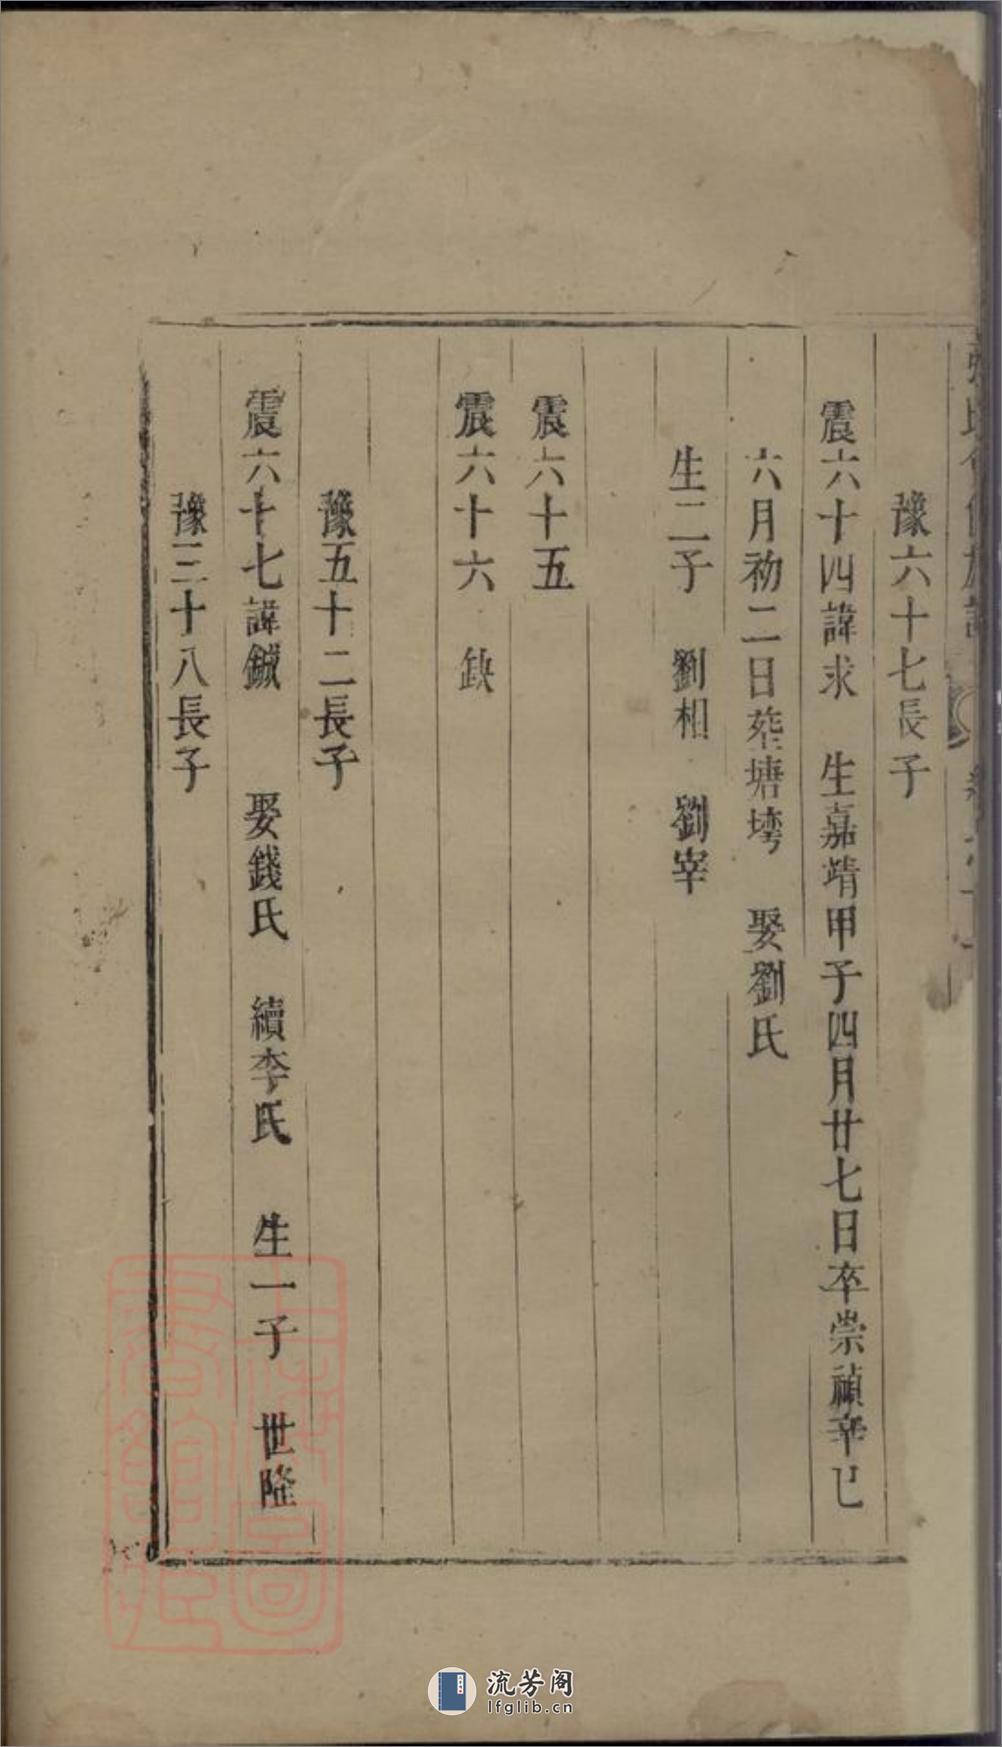 豫六十七長子
震六十四諱求 生嘉靖甲子四月廿七日卒崇禎辛巳
六月初二日塟塘塆 娶劉氏
生二子 劉相 劉宰
震六十五
震六十六 缺
豫五十二長子
震六十七諱鍼 娶錢氏 續李氏 生一子 世隆
豫三十八長子
上海圖書館藏
流芳阁
lfglib.cn